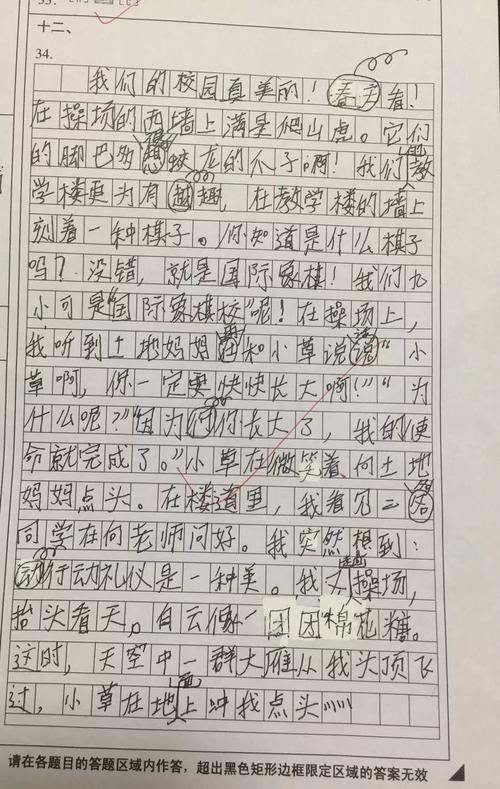 十二、
34.
我们的校园真美丽！春天看！
在操场的西墙上满是爬山虎。它们
的脚巴多像蛟龙的爪子啊！我们的教
学楼更为有趣，在教学楼的墙上
刻着一种棋子。你知道是什么棋子
吗？没错，就是国际象棋！我们九
小可是“国际象棋校”呢！在操场上，
我听到土地妈妈和小草说话“小
草啊，你一定要快快长大啊！”“为
什么呢？”“因为你长大了，我的使
命就完成了。”小草在微笑着、向土地
妈妈点头。在楼道里，我看见二
同学在向老师问好。我突然想到：
行动礼仪是一种美。我又操场，
抬头看天。白云像一团团棉花糖。
这时，天空中一群大雁从我头顶飞
过，小草在地上冲我点头
请在各题目的答题区域内作答，超出黑色矩形边框限定区域的答案无效